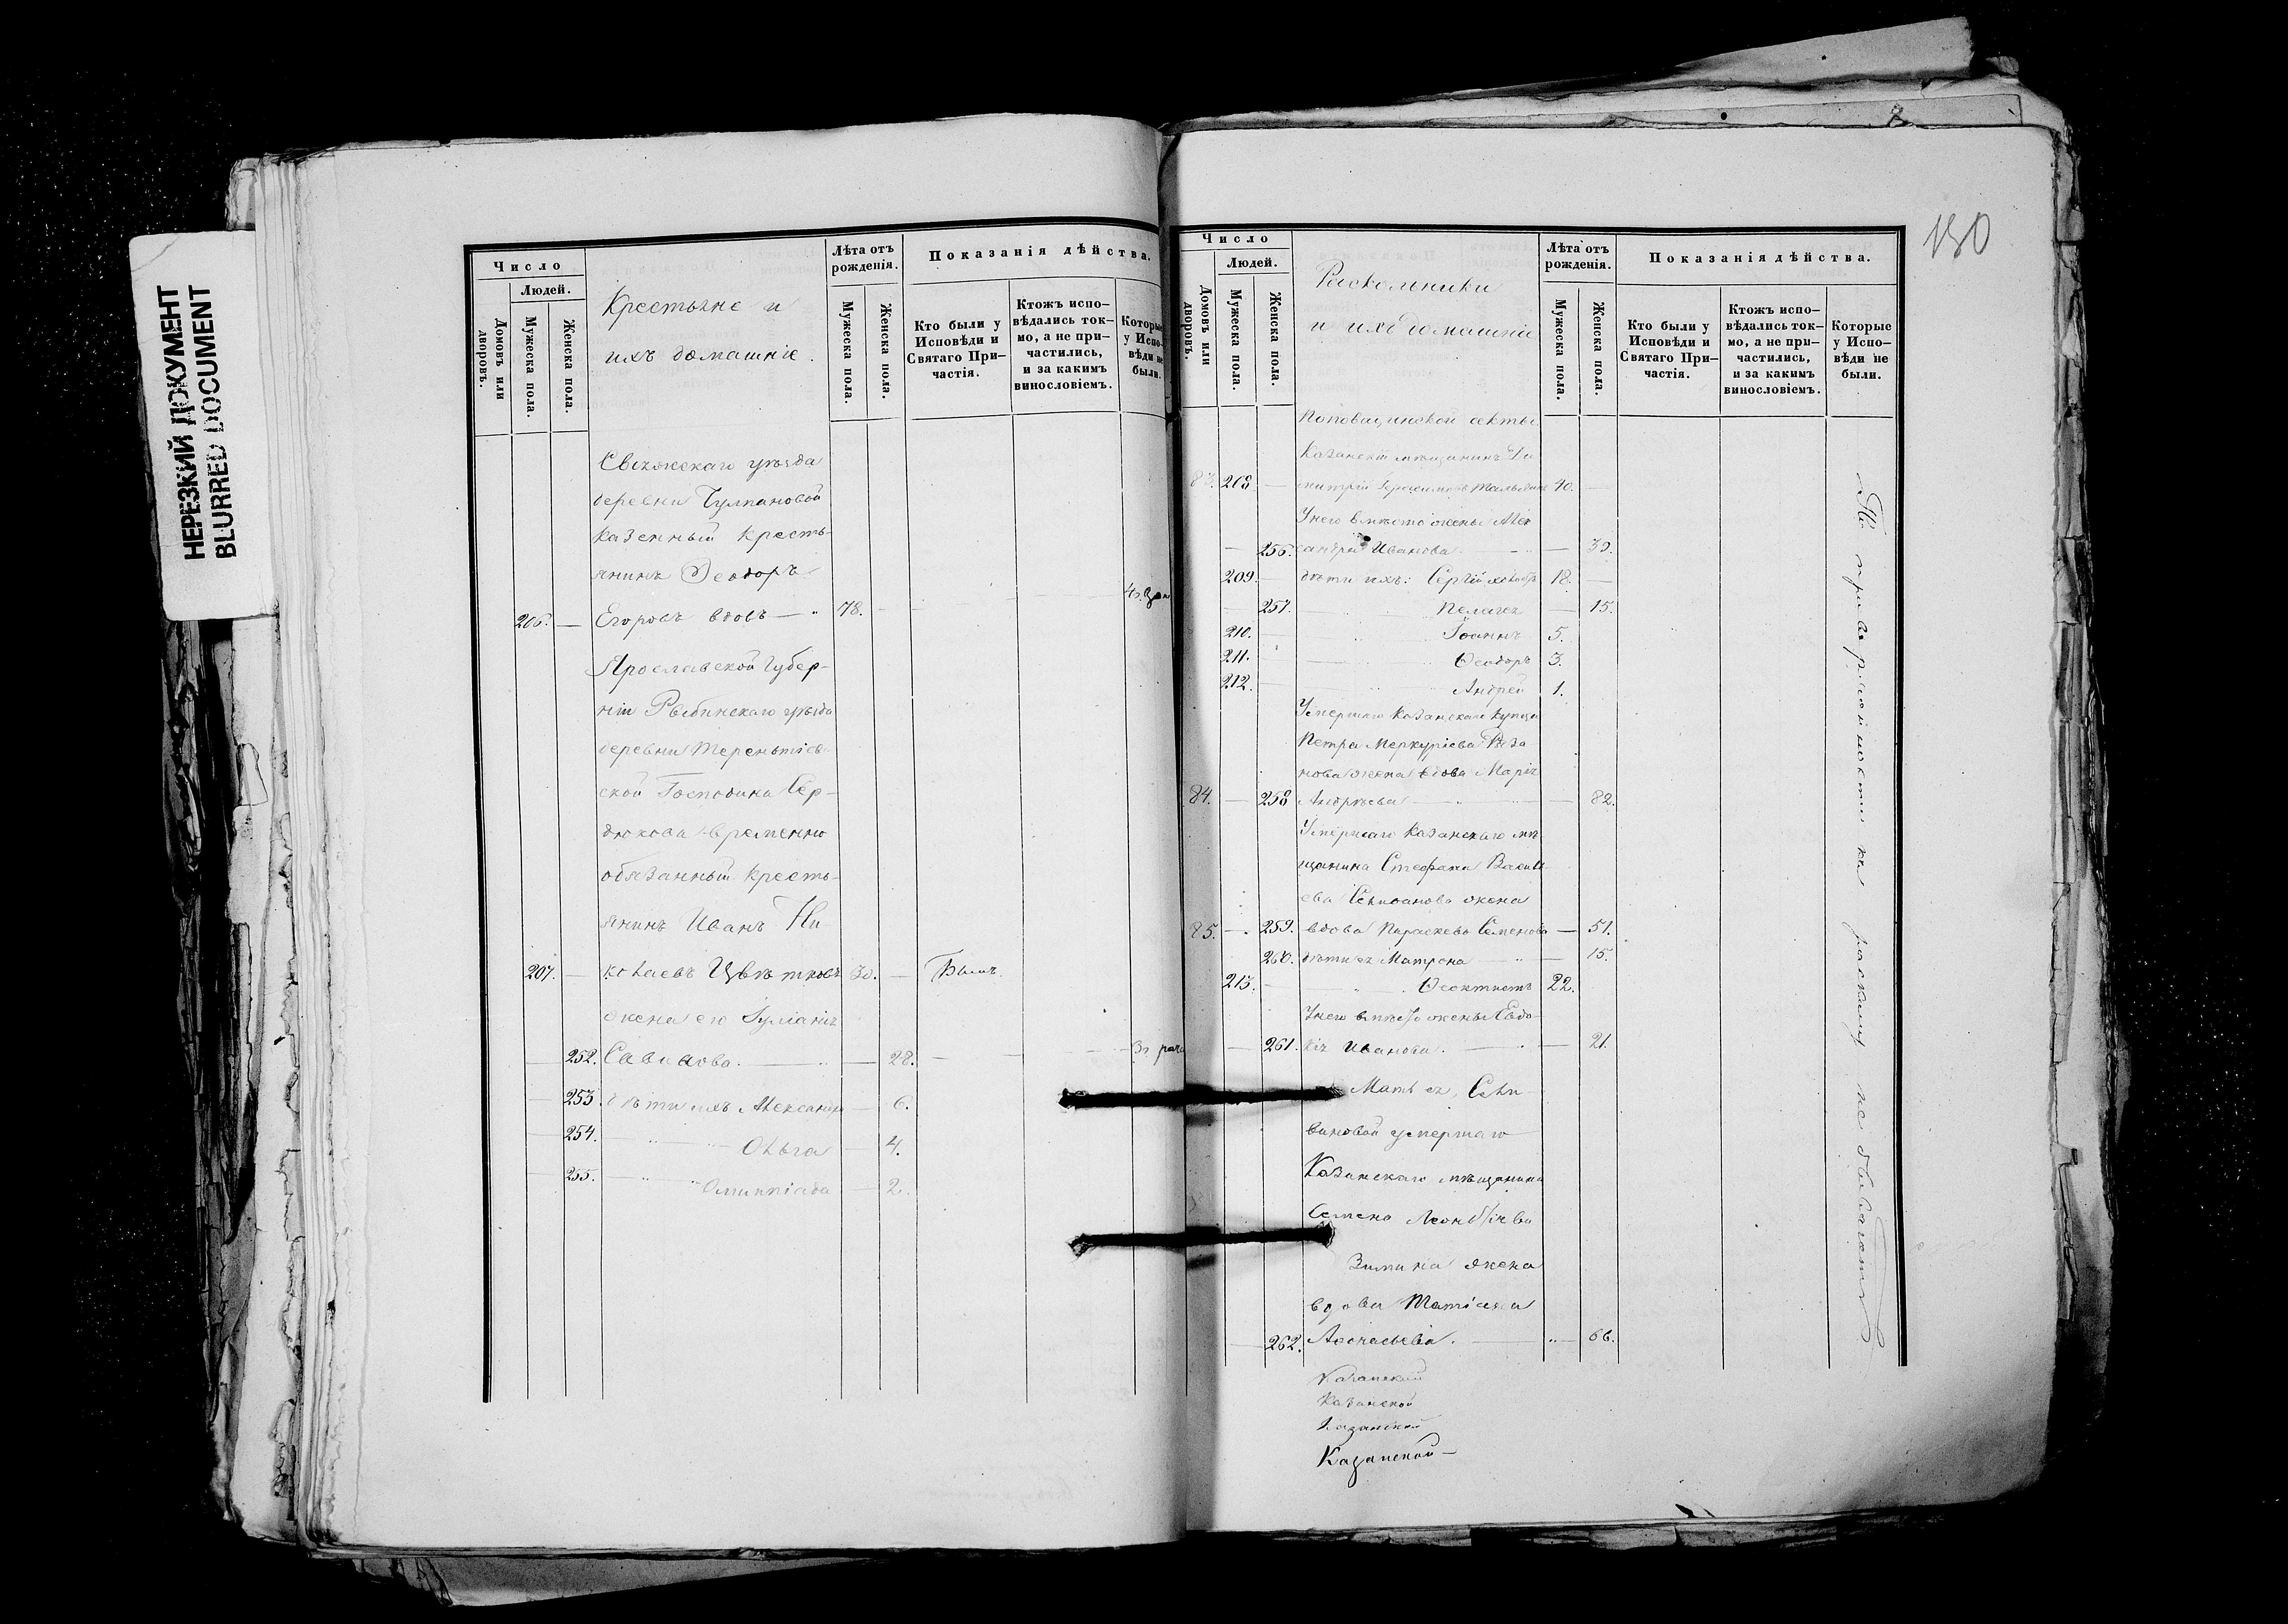 НЕРЕЗКИЙ ДОКУМЕНТ
BLURRED DOCUMENT
Число
Людей.
Домовъ или дворовъ.
Мужеска пола.
Женска пола.
Крестьяне и
ихъ домашніе.
Лѣта отъ рожденія.
Мужеска пола.
Женска пола.
Показанія дѣйства.
Кто были у Исповѣди и Святаго При-
частія.
Ктожъ испо-
вѣдались ток-
мо, а не при-
частились,
и за какимъ
винословіемъ.
Которые
у Испо-
вѣди не
были.
Свіяжскаго уѣзда
деревни Чулпановой
казенный кресть-
янинъ Ѳеодоръ
206. — Егоровъ вдовъ — 78.
Ярославской Губер-
ніи Рыбинскаго уѣзда
деревни Терентьев-
ской Господина Сер-
дюкова временно
обязанный кресть-
янинъ Иванъ Ни-
207. — колаевъ Цвѣтковъ 30. — Былъ.
жена его Іуліанія
252. Савинова. — 28.
253. дѣти ихъ Александра — 6.
254. Ольга — 4.
255. Олимпіада — 2.
130
Число
Людей.
Домовъ или дворовъ.
Мужеска пола.
Женска пола.
Раскольники
и ихъ домашніе
Лѣта отъ рожденія.
Мужеска пола.
Женска пола.
Показанія дѣйства.
Кто были у
Исповѣди и
Святаго При-
частія.
Ктожъ испо-
вѣдались ток-
мо, а не при-
частились,
и за какимъ
винословіемъ.
Которые
у Испо-
вѣди не
были.
Поповщинской секты
Казанскій мѣщанинъ Ди
83. 208. — митрій Герасимовъ 40. —
У него вмѣсто жены Алек
— 256. сандра Иванова — 39.
209. — дѣти ихъ: Сергій 18. —
— 257. Пелагея — 15.
210. — Іоаннъ 5.
211. — Ѳеодоръ 3.
212. — Андрей 1.
Умершаго Казанскаго купца
Петра Меркуріева Ряза
нова жена вдова Марія
84. — 258 Андреева — 82.
Умершаго Казанскаго мѣ
щанина Стефана Василь
ева Селиванова жена
85. — 259. вдова Параскева Семенова — 51.
260. дѣти ея Матрона — 15.
213. — Ѳеоктистъ 22.
У него вмѣсто жены Евдо-
— 261. кія Иванова. — 21.
Мать ея, Сели-
вановой умершаго
Казанскаго мѣщанина
Семена Леонтіева
Зимина жена
вдова Татіана
262. Аѳанасьева. — 66.
По приверженности къ расколу не бываетъ
Казанский
Казанской
Казанской
Казанской —